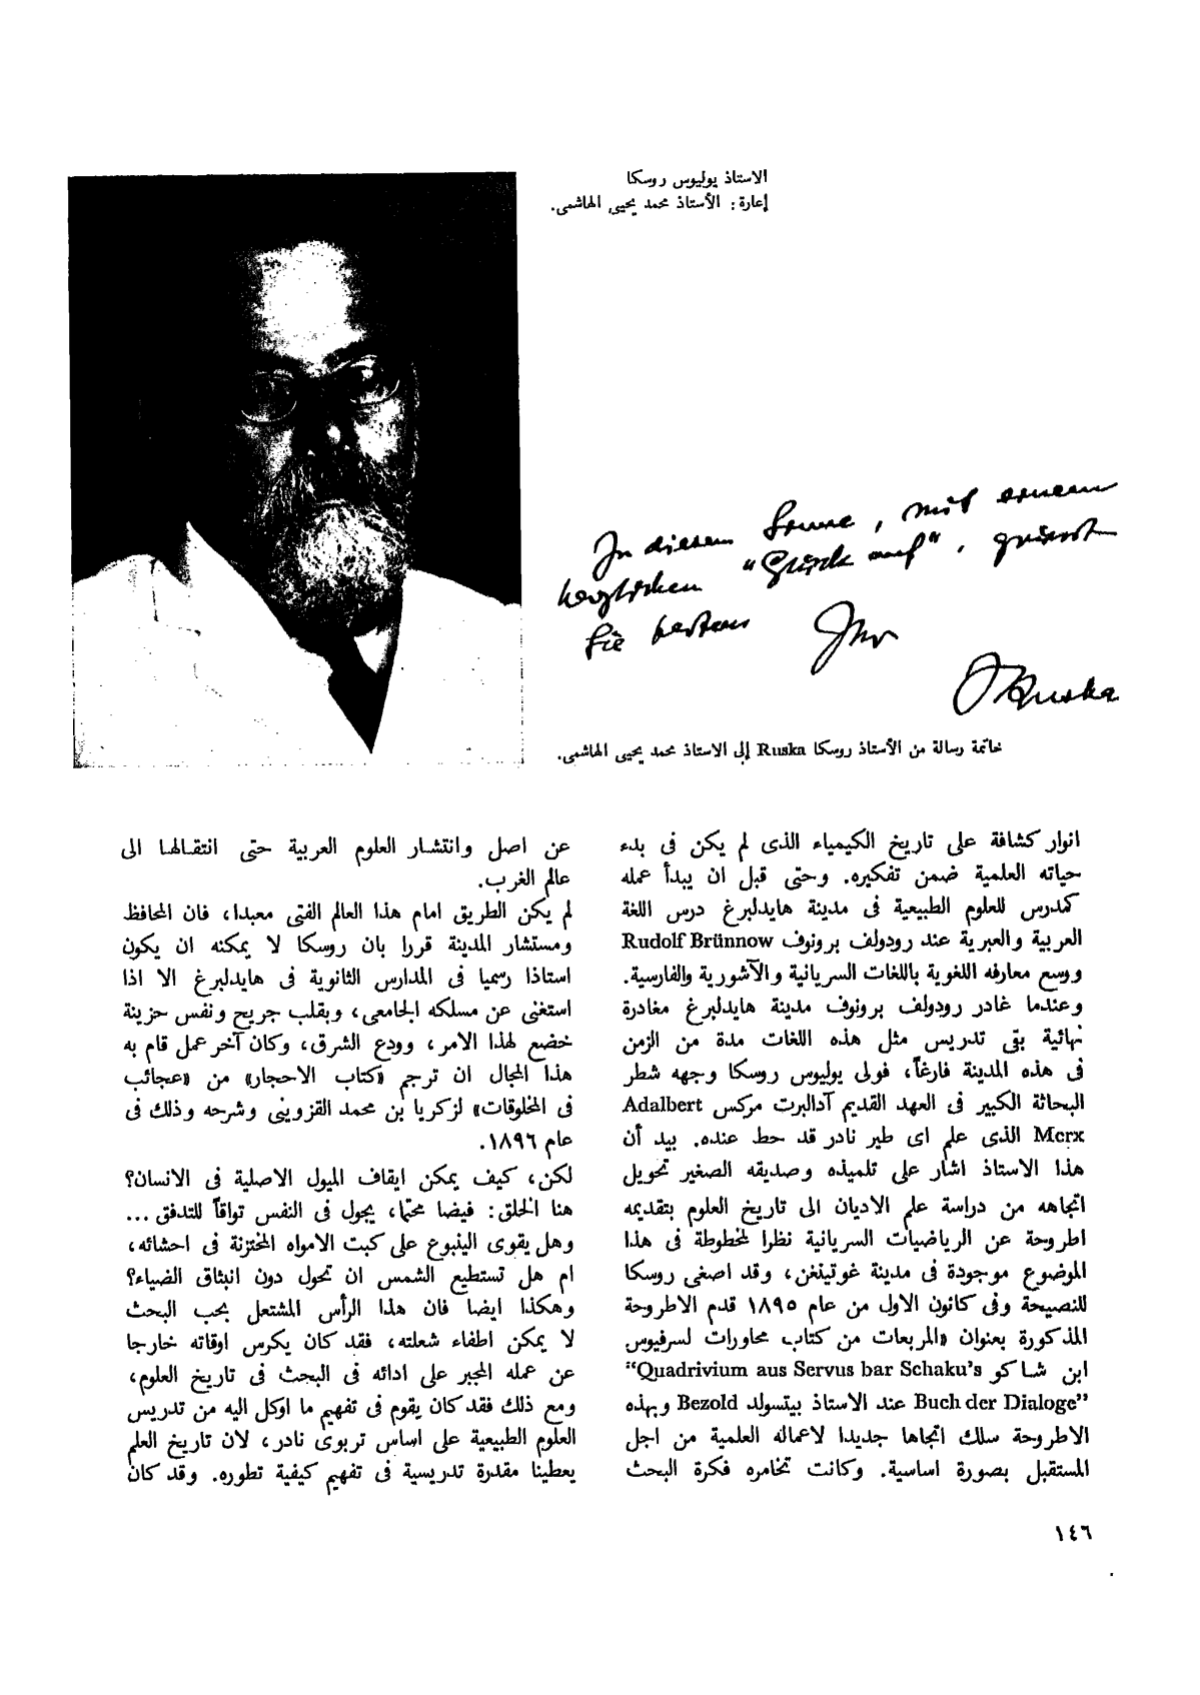 الاستاذ يوليوس روسكا
إعارة : الأستاذ محمد يحيى الهاشمى.
In diesem Sinne, mit einem
herzlichen "Glück auf", grüsst
Sie bestens Ihr
J Ruska
خاتمة رسالة من الأستاذ روسكا Ruska إلى الاستاذ محمد يحيى الهاشمى.
انوار كشافة على تاريخ الكيمياء الذى لم يكن فى بدء
حياته العلمية ضمن تفكيره. وحتى قبل ان يبدأ عمله
كمدرس للعلوم الطبيعية فى مدينة هايدلبرغ درس اللغة
العربية والعبرية عند رودولف برونوف Rudolf Brünnow
ووسع معارفه اللغوية باللغات السريانية والآشورية والفارسية.
وعندما غادر رودولف برونوف مدينة هايدلبرغ مغادرة
نهائية بقى تدريس مثل هذه اللغات مدة من الزمن
فى هذه المدينة فارغاً، فولى يوليوس روسكا وجهه شطر
البحاثة الكبير فى العهد القديم آدالبرت مركس Adalbert
Merx الذى علم اى طير نادر قد حط عنده. بيد أن
هذا الاستاذ اشار على تلميذه وصديقه الصغير تحويل
اتجاهه من دراسة علم الاديان الى تاريخ العلوم بتقديمه
اطروحة عن الرياضيات السريانية نظرا لمخطوطة فى هذا
الموضوع موجودة فى مدينة غوتينغن، وقد اصغى روسكا
للنصيحة وفى كانون الاول من عام ١٨٩٥ قدم الاطروحة
المذكورة بعنوان «المربعات من كتاب محاورات لسرفيوس
ابن شاكو "Quadrivium aus Servus bar Schaku's
Buch der Dialoge" عند الاستاذ بيتسولد Bezold وبهذه
الاطروحة سلك اتجاها جديدا لاعماله العلمية من اجل
المستقبل بصورة اساسية. وكانت تخامره فكرة البحث
عن اصل وانتشار العلوم العربية حتى انتقالها الى
عالم الغرب.
لم يكن الطريق امام هذا العالم الفتى معبدا، فان المحافظ
ومستشار المدينة قررا بان روسكا لا يمكنه ان يكون
استاذا رسميا فى المدارس الثانوية فى هايدلبرغ الا اذا
استغنى عن مسلكه الجامعى، وبقلب جريح ونفس حزينة
خضع لهذا الامر، وودع الشرق، وكان آخر عمل قام به
هذا المجال ان ترجم «كتاب الاحجار» من «عجائب
فى المخلوقات» لزكريا بن محمد القزوينى وشرحه وذلك فى
عام ١٨٩٦.
لكن، كيف يمكن ايقاف الميول الاصلية فى الانسان؟
هنا الخلق : فيضا محتما، يجول فى النفس تواقاً للتدفق ...
وهل يقوى الينبوع على كبت الامواه المختزنة فى احشائه،
ام هل تستطيع الشمس ان تحول دون انبثاق الضياء؟
وهكذا ايضا فان هذا الرأس المشتعل بحب البحث
لا يمكن اطفاء شعلته، فقد كان يكرس اوقاته خارجا
عن عمله المجبر على ادائه فى البحث فى تاريخ العلوم،
ومع ذلك فقد كان يقوم فى تفهيم ما اوكل اليه من تدريس
العلوم الطبيعية على اساس تربوى نادر، لان تاريخ العلم
يعطينا مقدرة تدريسية فى تفهيم كيفية تطوره. وقد كان
١٤٦